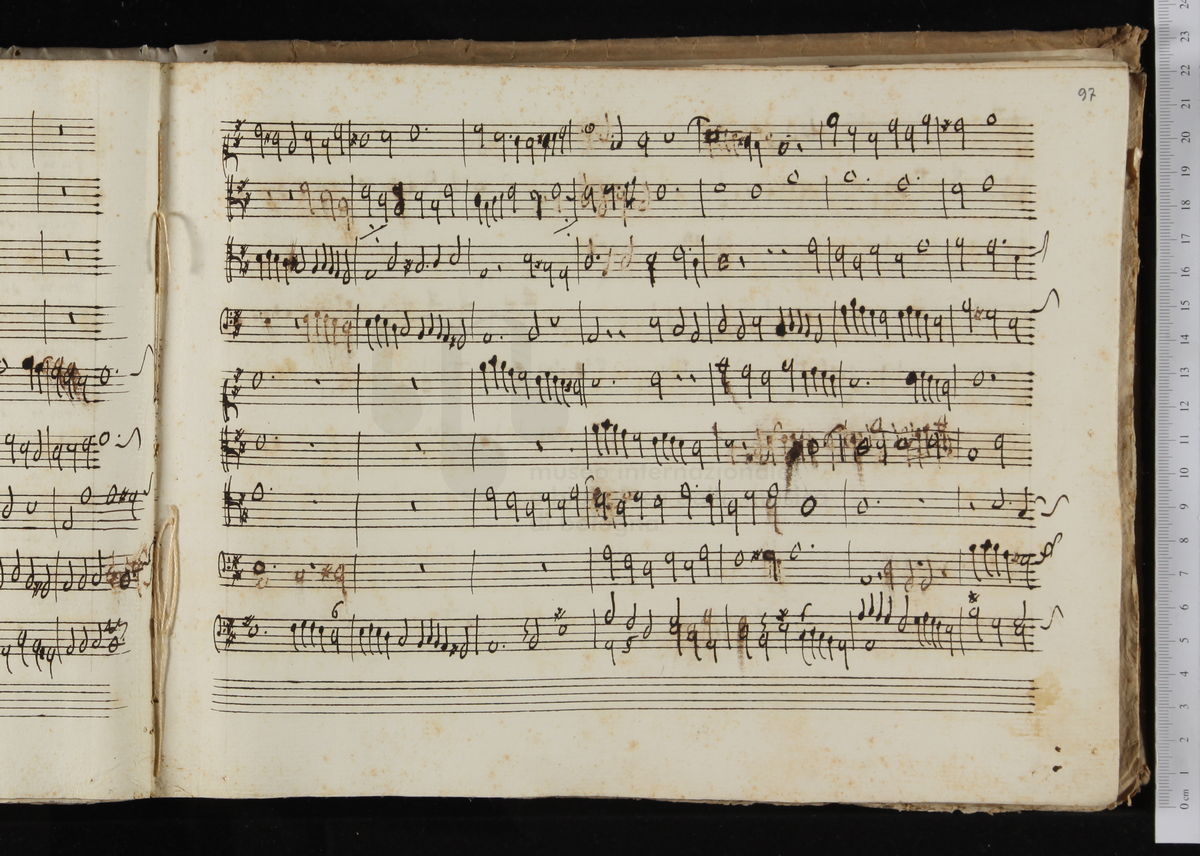 97
6
6
5
museo internazionale
24
23
22
21
20
19
18
17
16
15
14
13
12
11
10
9
8
7
6
5
4
3
2
1
0 cm